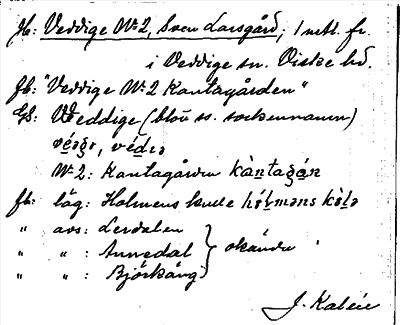 Jb: Veddige Nº 2, Sven Larsgård; 1 mtl. fr.
i Veddige sn. Viske hd.
Jb: "Veddige Nº 2 Kantagården"
GS: Veddige (blott ss. sockennamn)
Nº 2: Kantagården kàntagán
fb: läg: Holmens kulle hólməns kòlə
" avs: Lerdalen
" " : Annedal } okända
" " : Björkäng
J. Kalén